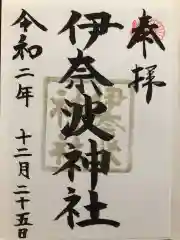 奉拝
伊奈波神社
令和二年
十二月二十五日